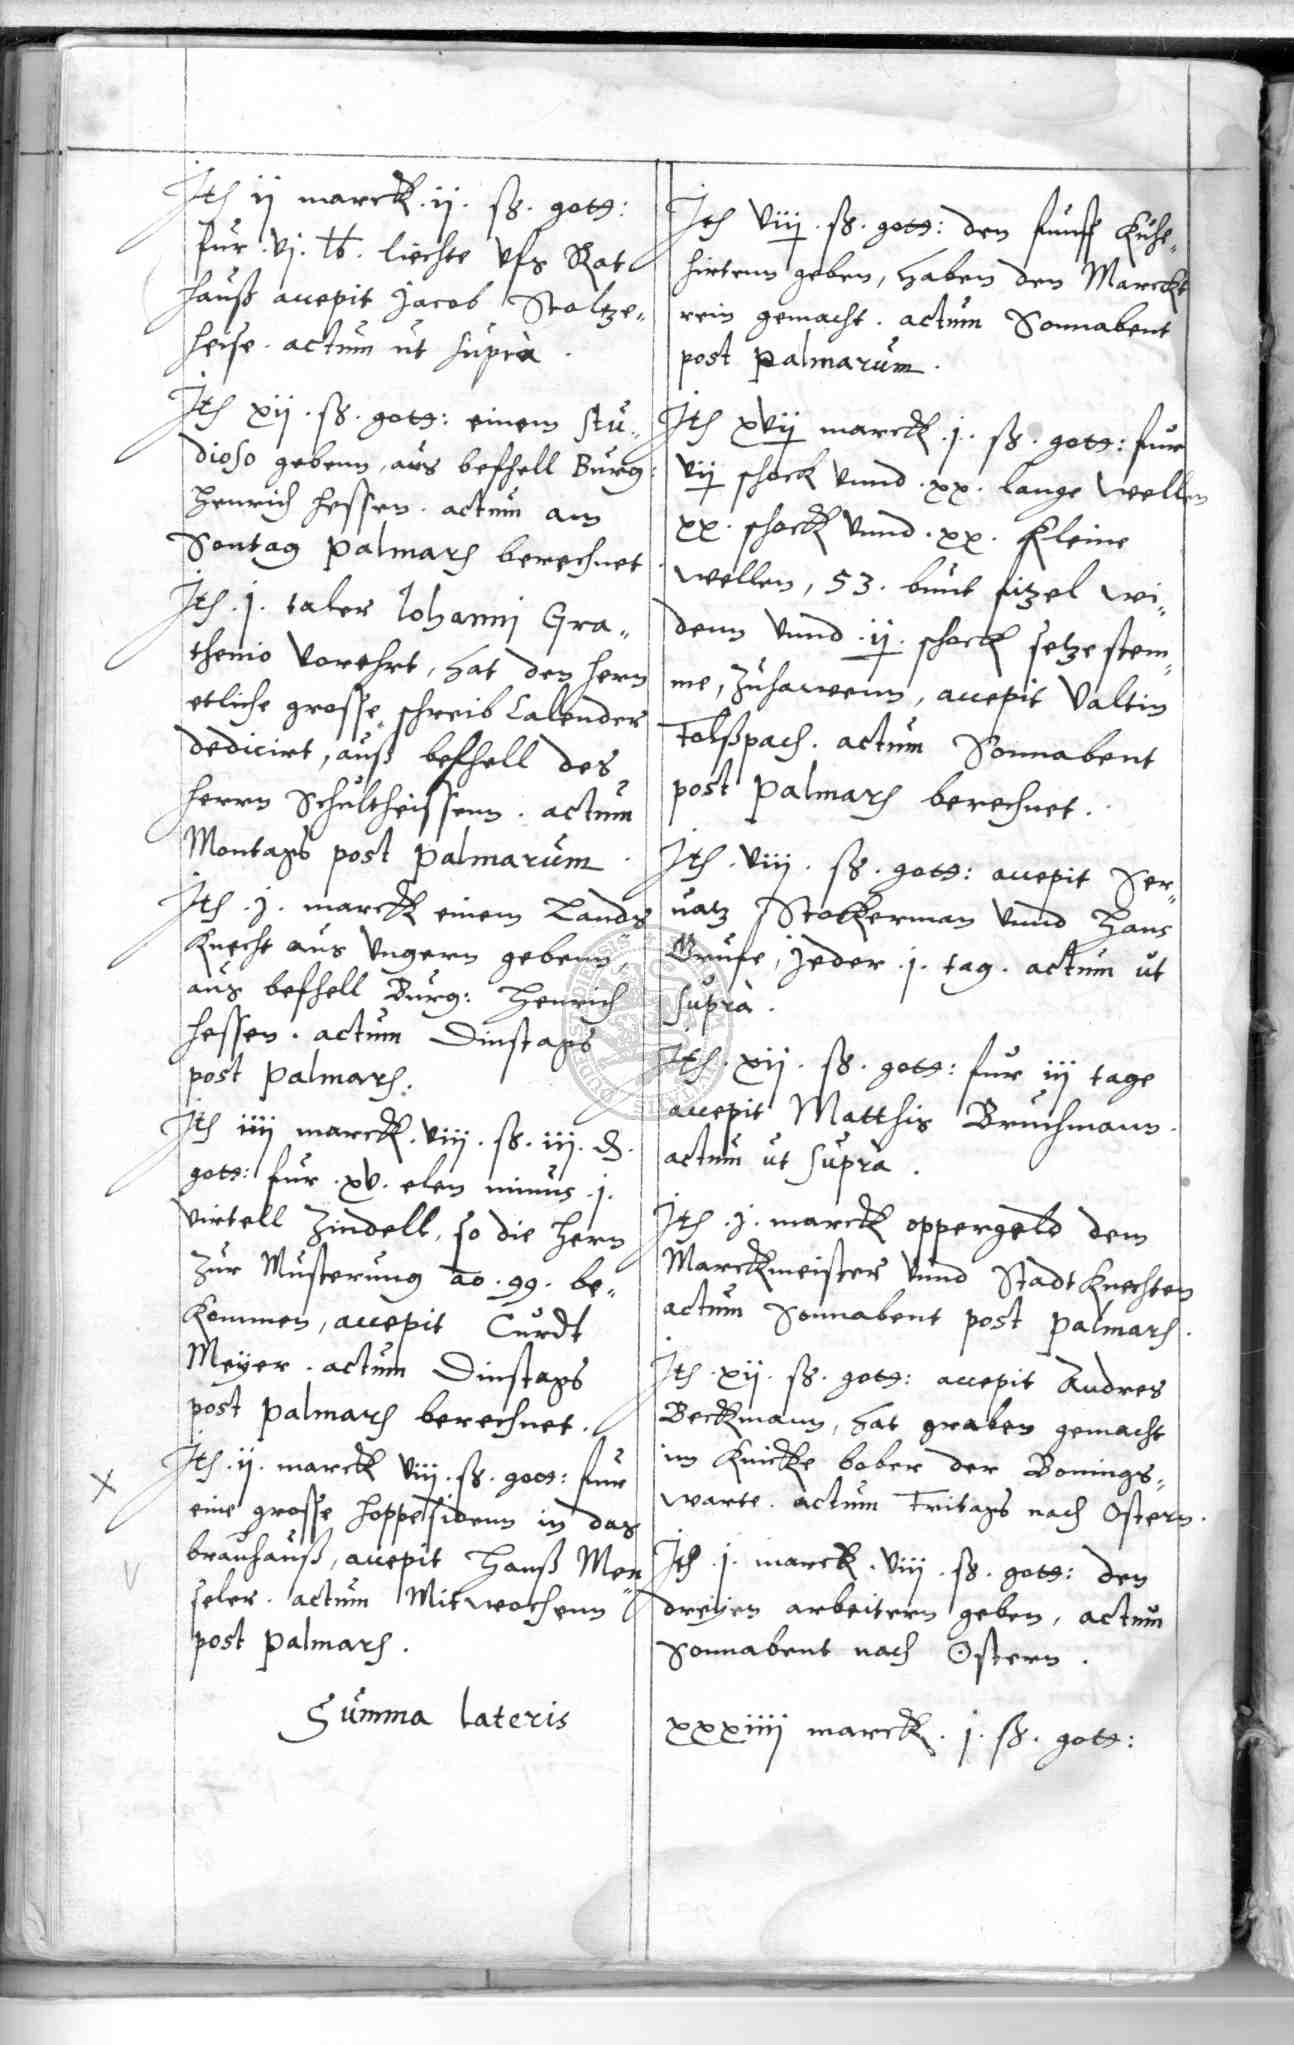 Itꝫ ij marckꝫ. ij. ß. gotꝫ:
fur. vj. ℔. liechte vfs Rat
hauß accepit Jacob Stoltze„
heise. actum ut suprà.
Itꝫ xij. ß. gotꝫ: einem stu„
dioso gebenn, aus befhell Burg:
Henrich Hessen. actum am
Sontag Palmarꝫ berechnet
Itꝫ. j. taler Johannj Gra„
thenio vorehrt, hat den hern
etliche grosse schreib Calender
dedicirt, auß befhell des
herrn Schultheissenn. actum
Montags post Palmarum.
Itꝫ. j. marckꝫ einem Lands
knecht aus Vngern gebenn,
aus befhell Burg: Henrich
Hessen. actum Dinstags
post Palmarꝫ.
Itꝫ iiij marckꝫ. viij. ß. iij. ₰.
gotꝫ: fur. xv. elen minus. j.
virtell Zindell, so die hern
zur Musterung ao. 99. be„
kommen, accepit Curdt
Meyer. actum Dinstags
post Palmarꝫ berechnet.
Itꝫ. ij. marckꝫ viij. ß. gotꝫ: fur
eine grosse hoppesidenn in das
brauhauß, accepit Hanß Men„
seler. actum Mitwochenn
post Palmarꝫ.
Summa lateris
Itꝫ viij. ß. gotꝫ: den funff Kuhe„
hirtenn geben, haben den Marckt
rein gemacht. actum Sonnabent
post Palmarum.
Itꝫ xvij marckꝫ. j. ß. gotꝫ: fur
vij schock vnnd. xx. lange wellen
xx. schockꝫ vnnd. xx. kleine
wellen, 53. bunt fitzel wi„
denn vnnd. ij. schock setzestem„
me, zuhawenn, accepit Valtin
Folßpach. actum Sonnabent
post Palmarꝫ berechnet.
Itꝫ. viij. ß. gotꝫ: accepit Ser„
uatz Stockerman vnnd Hans
Brune, jeder. j. tag. actum ut
suprà.
Itꝫ. xij. ß. gotꝫ: fur iij tage
accepit Matthis Bruchmann.
actum ut suprà.
Itꝫ. j. marckꝫ oppergeld dem
Marckmeister vnnd Stadtknechten
actum Sonnabent post Palmarꝫ.
Itꝫ. xij. ß. gotꝫ: accepit Andres
Beckmann, hat graben gemacht
im Knicke bober der Bonings„
warte. actum Fritags nach Ostern.
Itꝫ. j. marckꝫ. viij. ß. gotꝫ: den
dreyen arbeitern geben, actum
Sonnabent nach Ostern.
xxxiiij marckꝫ. j. ß. gotꝫ: